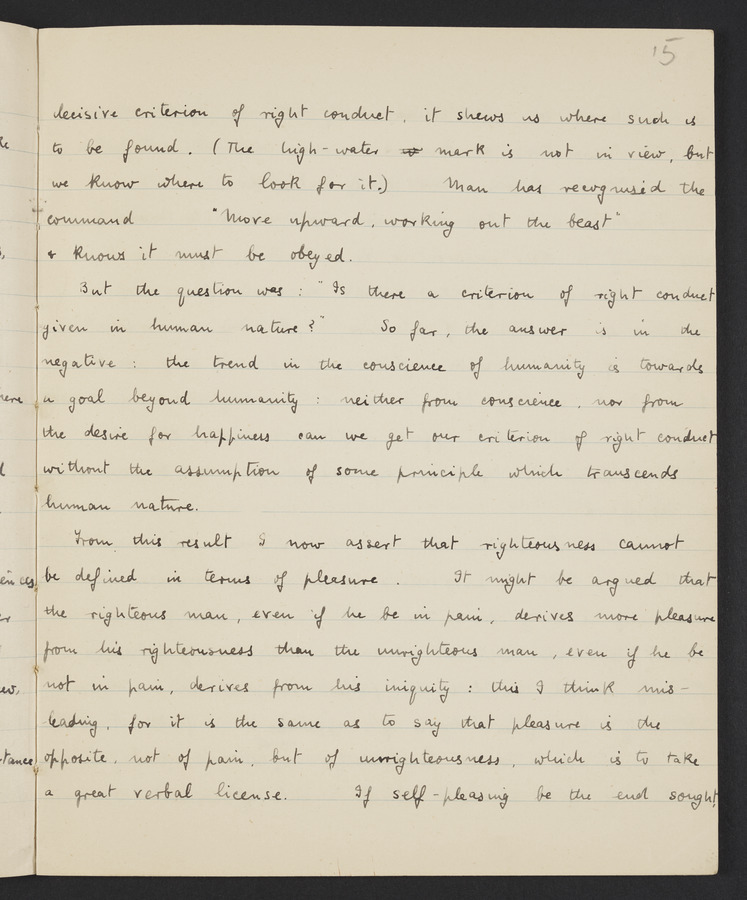 15
decisive criterion of right conduct, it shews us where such is
to be found. (The high-water mark is not in view, but
we know where to look for it.) Man has recognised the
command "Move upward, working out the beast"
& knows it must be obeyed.
But the question was: "Is there a criterion of right conduct
given in human nature?" So far, the answer is in the
negative: the trend in the conscience of humanity is towards
a goal beyond humanity: neither from conscience, nor from
the desire for happiness can we get our criterion of right conduct
without the assumption of some principle which transcends
human nature.
From this result I now assert that righteousness cannot
be defined in terms of pleasure. It might be argued that
the righteous man, even if he be in pain, derives more pleasure
from his righteousness than the unrighteous man, even if he be
not in pain, derives from his iniquity: this I think mis-
leading, for it is the same as to say that pleasure is the
opposite, not of pain, but of unrighteousness, which is to take
a great verbal license. If self-pleasing be the end sought,